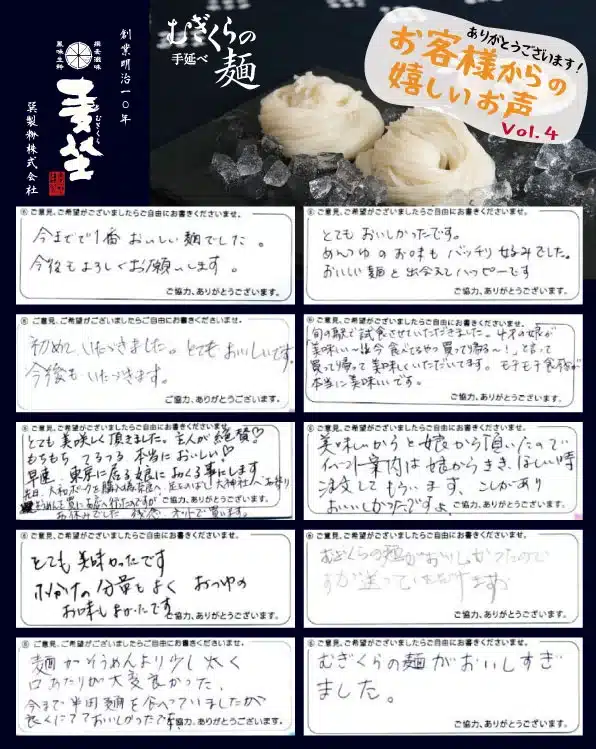 創業明治一〇年
損書滋味
風味生粋
麦坐
むぎくら
巽製粉株式会社
むぎくらの
手延べ
麺
ありがとうございます!
お客様からの
嬉しいお声
Vol.4
⑥ ご意見、ご希望がございましたらご自由にお書きくださいませ。
今までで1番 おいしい麺でした。
今後もよろしくお願いします。
ご協力、ありがとうございます。
⑥ ご意見、ご希望がございましたらご自由にお書きくださいませ。
とても おいしかったです。
めんつゆ のお味も バッチリ 好みでした。
おいしい 麺と出会えてハッピーです
ご協力、ありがとうございます。
⑥ ご意見、ご希望がございましたらご自由にお書きくださいませ。
初めて いただきました。とても おいしいです。
今後も いただきます。
ご協力、ありがとうございます。
⑥ ご意見、ご希望がございましたらご自由にお書きくださいませ。
旬の駅で試食させていただきました。4才の娘が
「美味しい~!!今食べてるやつ買って帰る~!」と言って
買って帰って美味しくいただいてます。モチモチ食感が
本当に美味しいです。
ご協力、ありがとうございます。
⑥ ご意見、ご希望がございましたらご自由にお書きくださいませ。
とても 美味しく頂きました。主人が絶賛♡
もちもち つるつる 本当においしい♡
早速、東京に居る娘におくる事にします
先日、大和ポークを購入の為奈良へ 足をのばし 大神社へお参り
そうめんを買いにお店へ行ったのですが
お休みでした 後感 ネットで買います。
ご協力、ありがとうございます。
⑥ ご意見、ご希望がございましたらご自由にお書きくださいませ。
美味しいからと娘から頂いたので
イベント案内は娘からきき、ほしい時
注文してもらいます、こしがあり
おいしかったですよ、
ご協力、ありがとうございます。
⑥ ご意見、ご希望がございましたらご自由にお書きくださいませ。
とても美味かったです
小分けの分量もよく おつゆの
お味もよかったです
ご協力、ありがとうございます。
⑥ ご意見、ご希望がございましたらご自由にお書きくださいませ。
むぎくらの麺がおいしかったので
すが送っていただけますか
ご協力、ありがとうございます。
⑥ ご意見、ご希望がございましたらご自由にお書きくださいませ。
麺がそうめんより少し太く
口あたりが大変良かった、
今まで半田麺を食べっていましたが
良くにてておいしかったです。
ご協力、ありがとうございます。
⑥ ご意見、ご希望がございましたらご自由にお書きくださいませ。
むぎくらの麺がおいしすぎ
ました。
ご協力、ありがとうございます。